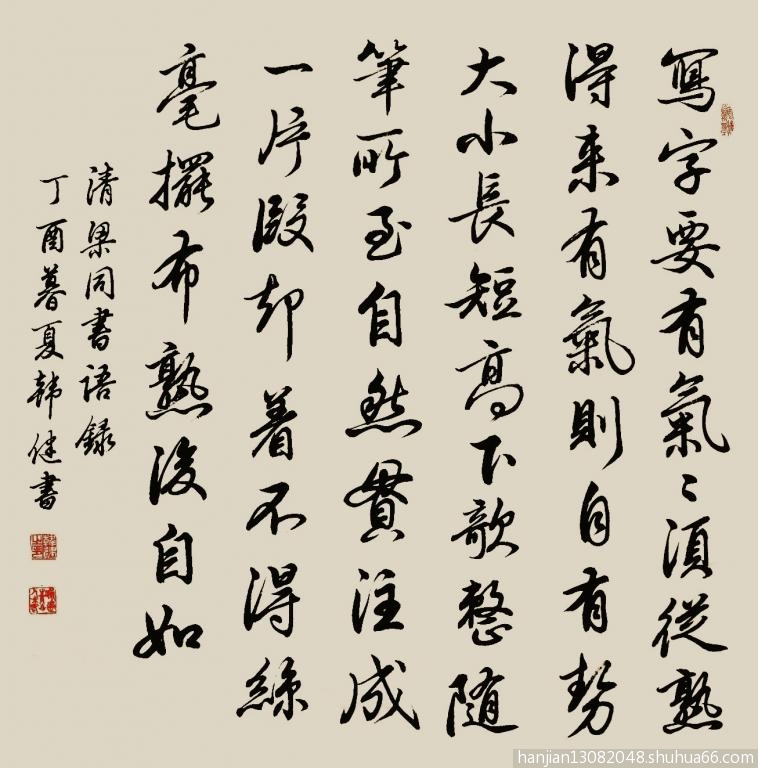 寫字要有氣〻須從熟
得来有氣則自有勢
大小長短高下欹整随
筆所至自然貫注成
一片段却着不得絲
毫擺布熟後自如
清梁同書语録
丁酉暮夏韩健書
hanjian13082048.shuhua66.com